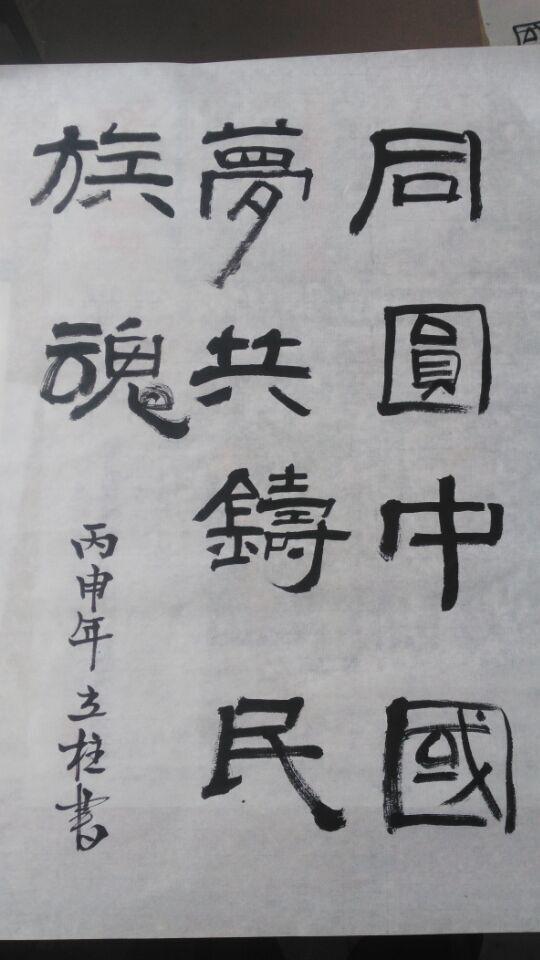 同圓中國
夢共鑄民
族魂
丙申年立柱書